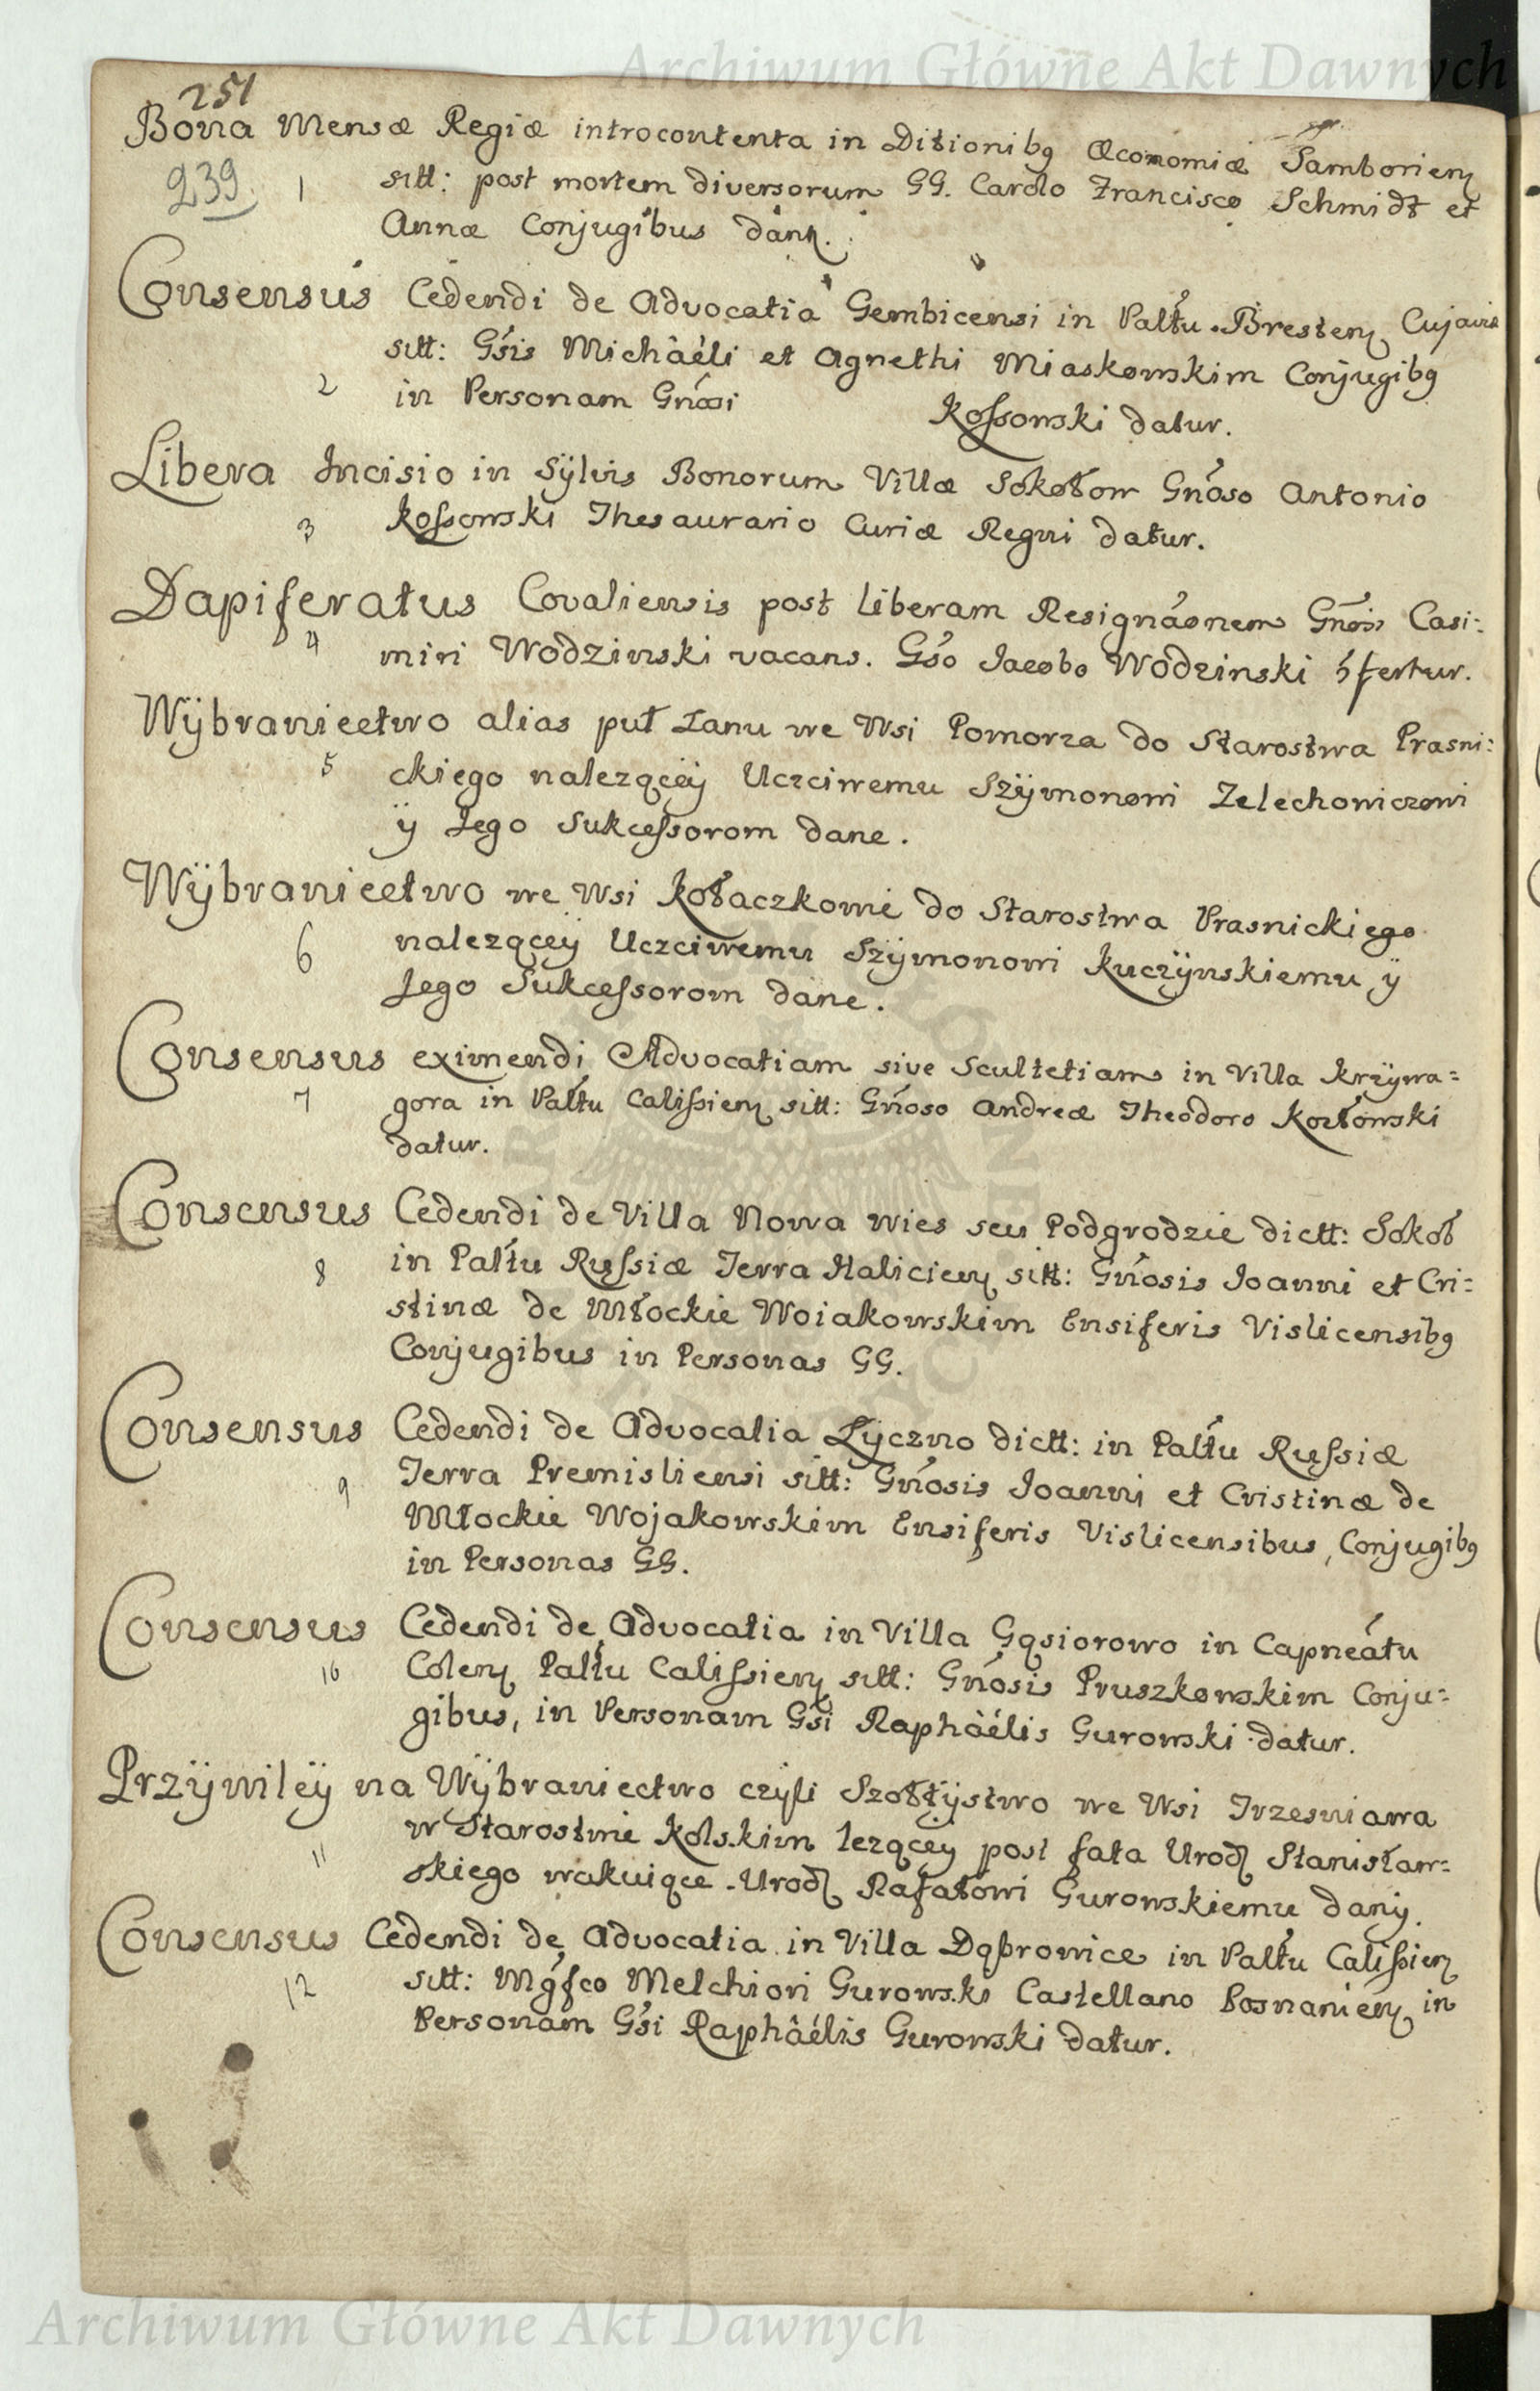 Archiwum Główne Akt Dawnych
251
Bona Mensæ Regiæ introcontenta in Ditionibq Œconomiæ Samborien
239. 1 sitt: post mortem diversorum GG. Carolo Francisco Schmidt et
Annæ Conjugibus dant.
Consensus Cedendi de Advocatia Gembicensi in Palťu Bresten Cujavia
sitt: Gsis Michàéli et Agnethi Miaskowskim Conjugibq
2 in Personam Gnōsi Kossowski datur.
Libera Incisio in Sÿlvis Bonorum Villæ Sokołow Gnōso Antonio
3 Kossowski Thesaurario Curiæ Regni datur.
Dapiferatus Covaliensis post liberam Resignāōnem Gnōsi Casi:
4 miri Wodzinski vacans. Gso Jacobo Wodzinski ɔ̃fertur.
Wÿbraniectwo alias puł Łanu we Wsi Pomorza do Starostwa Prasni:
5 ckiego nalezącéÿ Uczciwemu Szÿmonowi Zelechowiczowi
ÿ Jego Sukcessorom dane.
Wÿbraniectwo we Wsi Kołaczkowie do Starostwa Prasnickiego
6 nalezącéÿ Uczciwemu Szÿmonowi Kuczÿnskiemu ÿ
Jego Sukcessorom dane.
Consensus eximendi Advocatiam sive Scultetiam in Villa Krzÿwa=
7 gora in Palťu Calissien sitt: Gnōso Andreæ Theodoro Kozłowski
datur.
Consensus Cedendi de Villa Nowa Wies seu Podgrodzie dictt: Sokoł
8 in Palťu Russiæ Terra Halicien sitt: Gnōsis Joanni et Cri:
stinæ de Młockie Woiakowskim Ensiferis Vislicensibq
Conjugibus in Personas GG.
Consensus Cedendi de Advocatia Łyczno dictt: in Palťu Russiæ
9 Terra Premisliensi sitt: Gnōsis Joanni et Cristinæ de
Młockie Wojakowskim Ensiferis Vislicensibus, Conjugibq
in Personas GG.
Consensus Cedendi de Advocatia in Villa Gąsiorowo in Capneátu
10 Colen Palťu Calissien sitt: Gnōsis Pruszkowskim Conju=
gibus, in Personam Gsi Raphàélis Gurowski datur.
Przÿwileÿ na Wÿbraniectwo czÿli Szołtÿstwo we Wsi Trzesniawa
11 w Starostwie Kolskim lezącéy post fata Urodz Stanisław=
skiego wakuiące Urodz Rafałowi Gurowskiemu danÿ.
Consensus Cedendi de Advocatia in Villa Dąbrowice in Palťu Calissien
12 sitt: Mgfco Melchiori Gurowski Castellano Posnanien in
Personam Gsi Raphàélis Gurowski datur.
Archiwum Główne Akt Dawnych